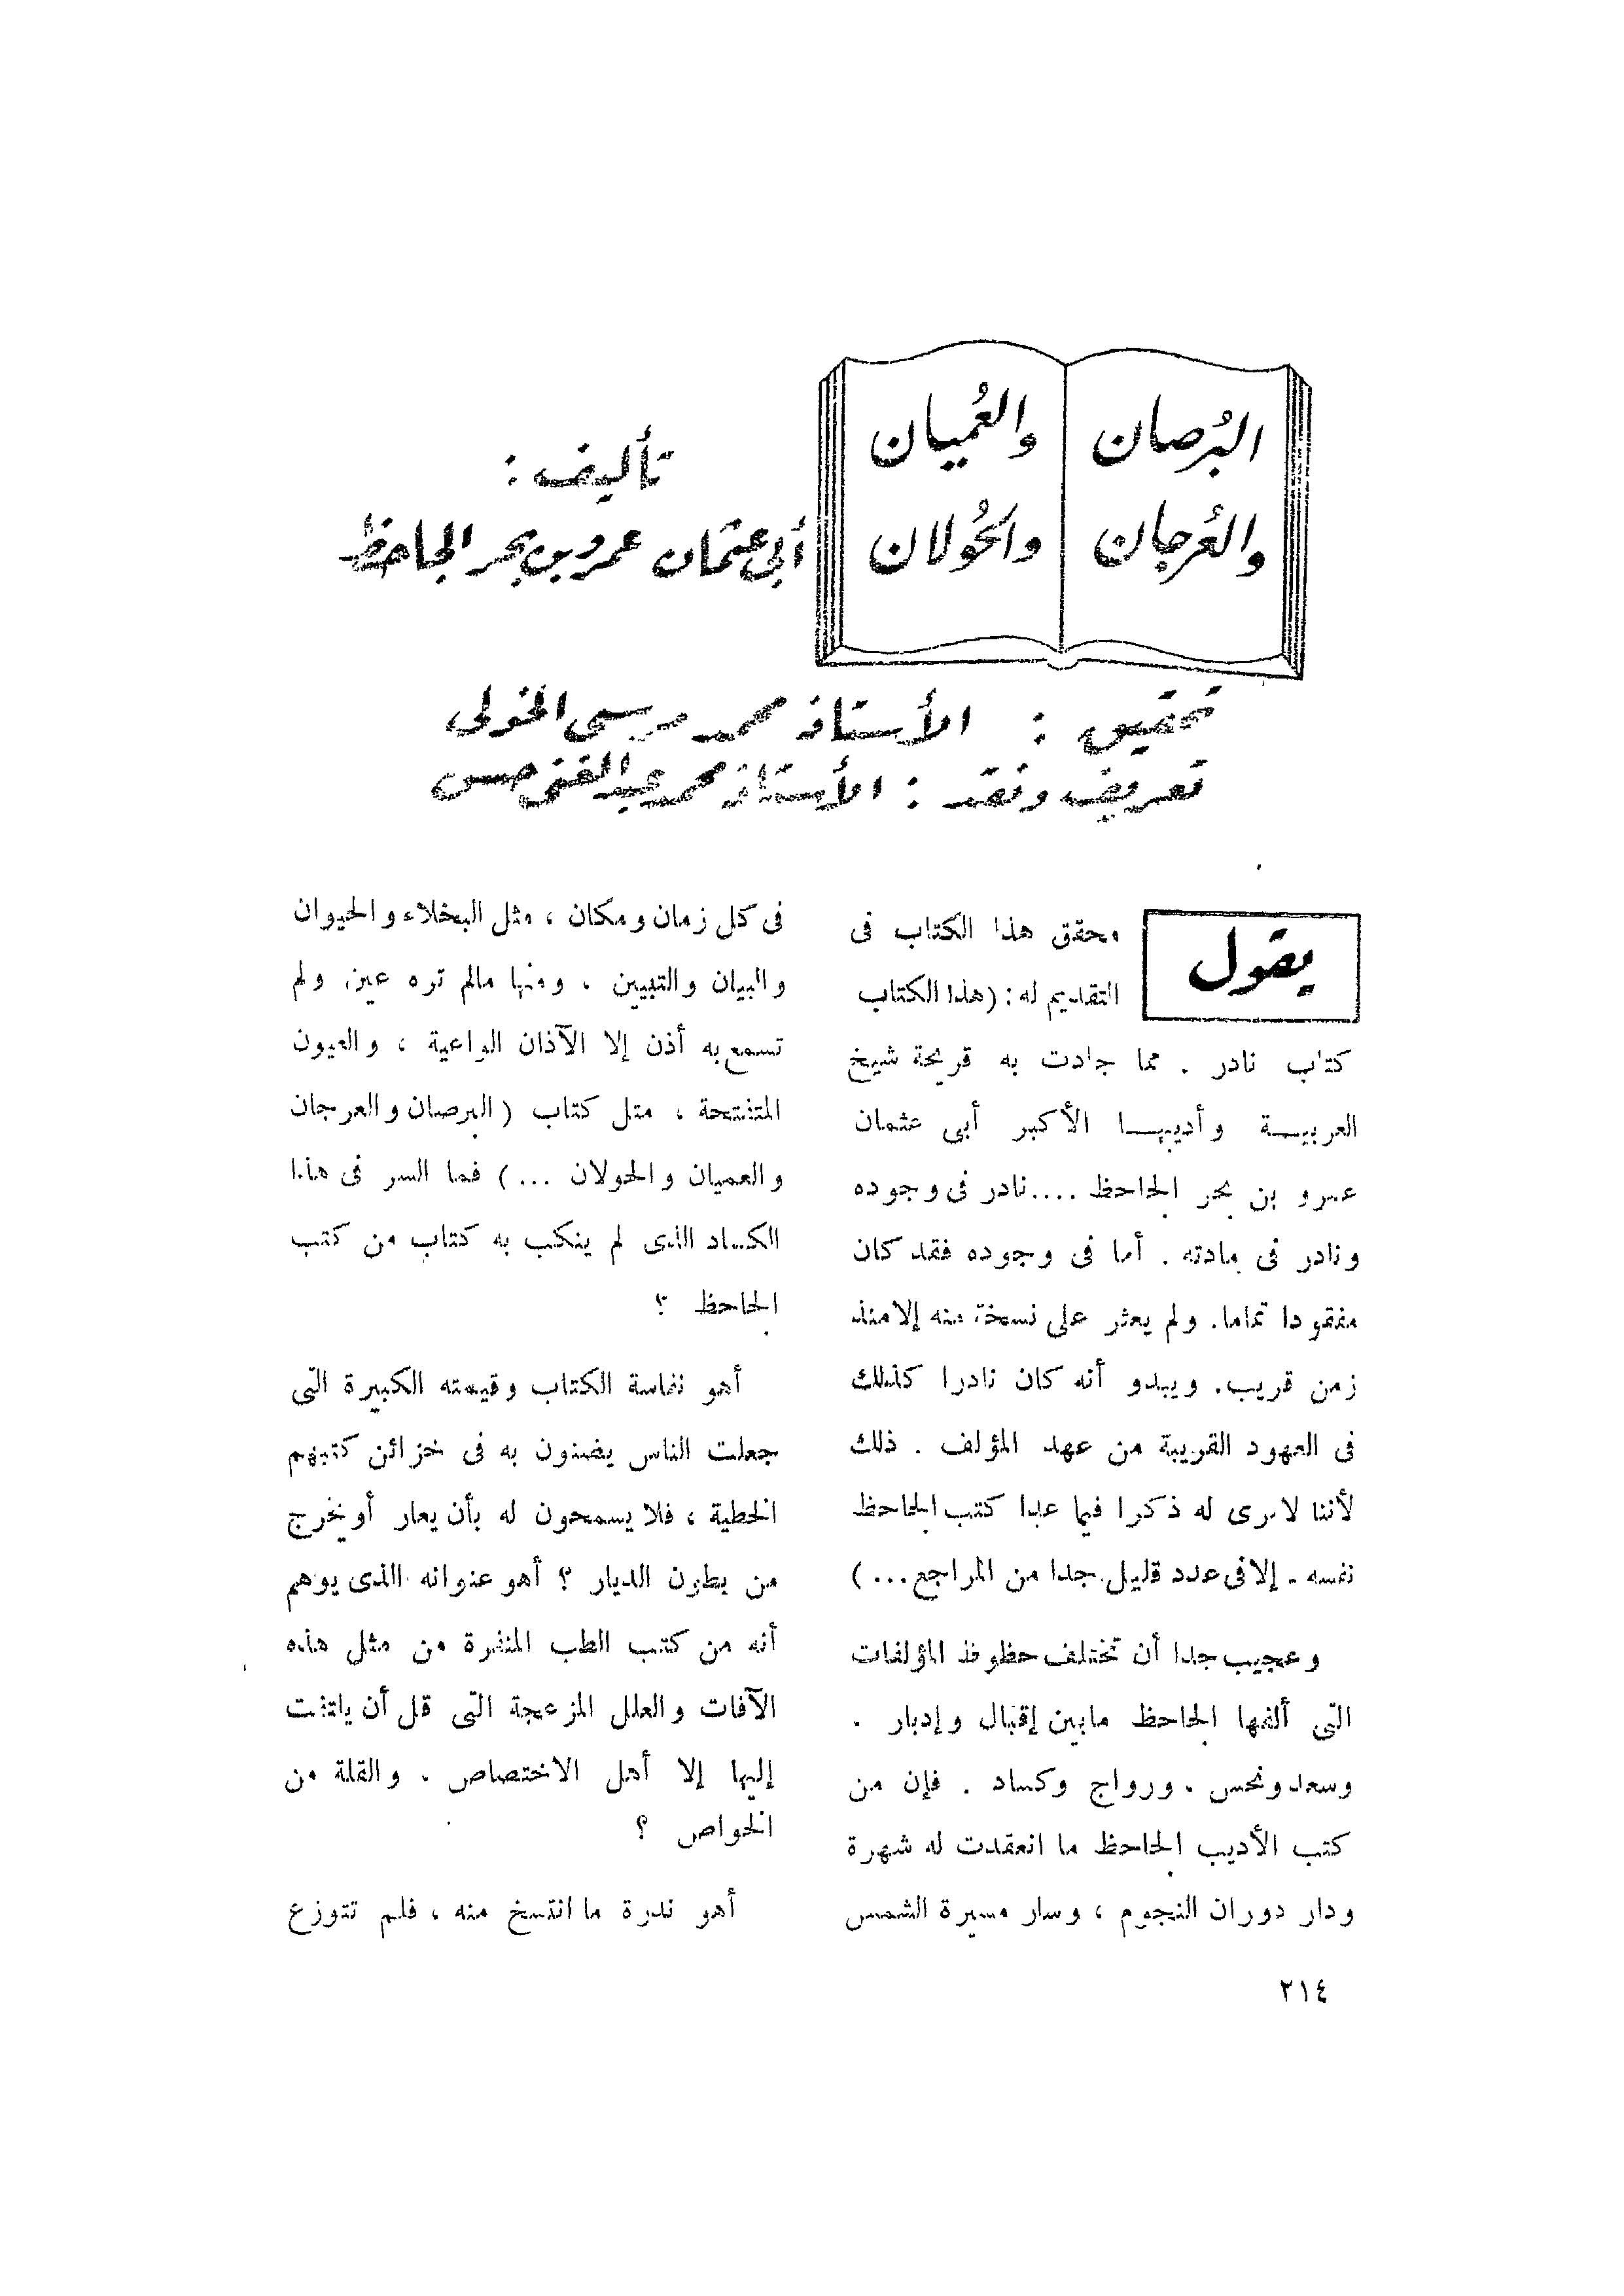 البُرصان
والعُرجان
والعُميان
والحُولان
تأليف :
أبى عثمان عمرو بن بحر الجاحظ
تحقيق : الأستاذ محمد مرسى الخولى
تعريف ونقد : الأستاذ محمد عبد الغنى حسن
يقول
محقق هذا الكتاب فى
التقديم له : (هذا الكتاب
كتاب نادر . مما جادت به قريحة شيخ
العربيــة وأديبهــا الأكبر أبى عثمان
عمرو بن بحر الجاحظ .... نادر فى وجوده
ونادر فى مادته . أما فى وجوده فقد كان
مفقودا تماما. ولم يعثر على نسخة منه إلا منذ
زمن قريب. ويبدو أنه كان نادرا كذلك
فى العهود القريبة من عهد المؤلف . ذلك
لأننا لا نرى له ذكرا فيما عدا كتب الجاحظ
نفسه . إلا فى عدد قليل جدا من المراجع ... )
وعجيب جدا أن تختلف حظوظ المؤلفات
التى ألفها الجاحظ مابين إقبال وإدبار .
وسعد ونحس . ورواج وكساد . فإن من
كتب الأديب الجاحظ ما انعقدت له شهرة
ودار دوران النجوم ، وسار مسيرة الشمس
فى كل زمان ومكان ، مثل البخلاء والحيوان
والبيان والتبيين . ومنها مالم تره عين ولم
تسمع به أذن إلا الآذان الواعية ، والعيون
المتفتحة ، مثل كتاب (البرصان والعرجان
والعميان والحولان ... ) فما السر فى هذا
الكساد الذى لم ينكب به كتاب من كتب
الجاحظ ؟
أهو نفاسة الكتاب وقيمته الكبيرة التى
جعلت الناس يضنون به فى خزائن كتبهم
الخطية ، فلا يسمحون له بأن يعار أو يخرج
من بطون الديار ؟ أهو عنوانه الذى يوهم
أنه من كتب الطب المنفرة من مثل هذه
الآفات والعلل المزعجة التى قل أن يلتفت
إليها إلا أهل الاختصاص . والقلة من
الخواص ؟
أهو ندرة ما انتسخ منه ، فلم تتوزع
٢١٤